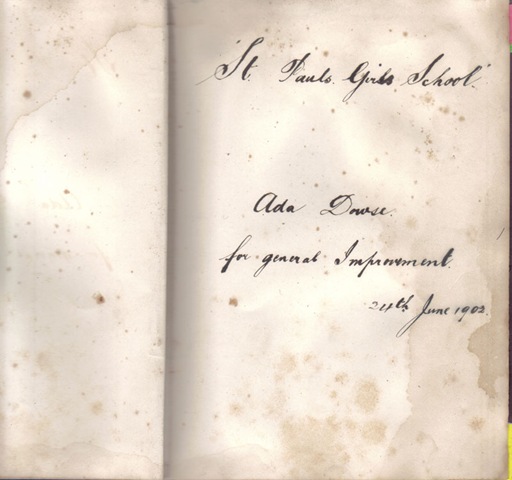 'St. Pauls. Girls School.'
Ada Dowse.
for general Improvement.
24th June 1902.